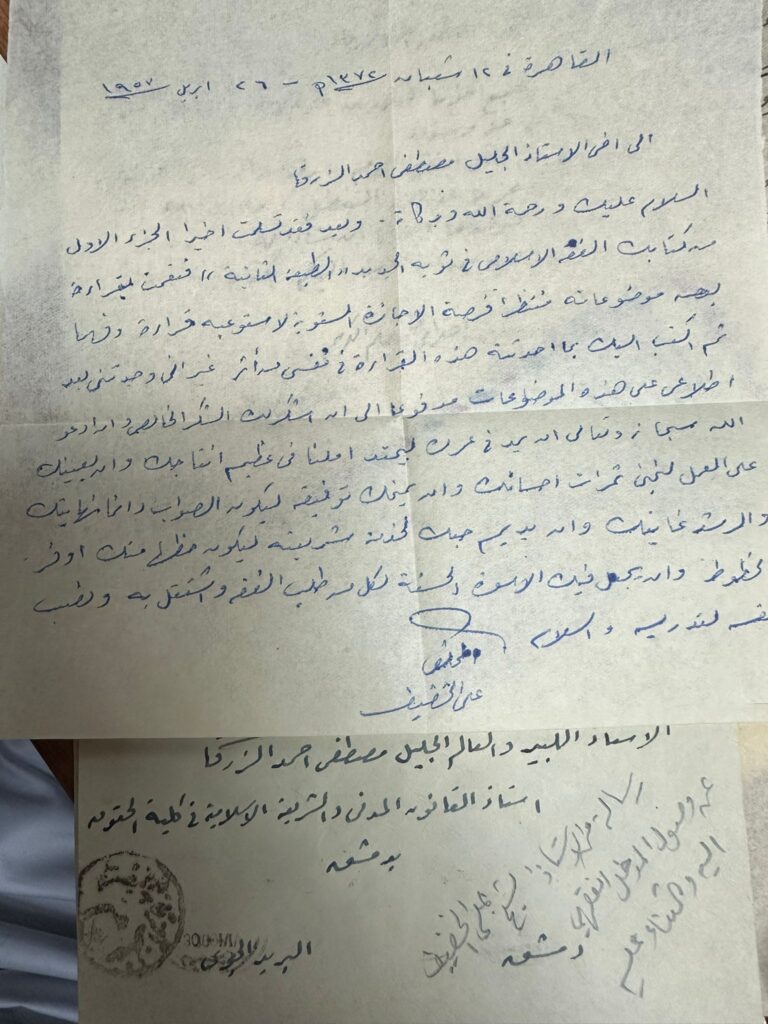 القاهرة في ١٢ شعبان ١٣٧٢ هـ – ٢٦ ابريل ١٩٥٣
الى اخى الاستاذ الجليل مصطفى احمد الزرقا
السلام عليك ورحمة الله وبركاته. وبعد فقد تسلمت اخيرا الجزء الاول
من كتابك الفقه الاسلامى في ثوبه الجديد "الطبعة الثانية" فقمت بقراءة
بعض موضوعاته منتظرا فرصة الاجازة السنوية لاستوعبه قراءة وفهما
ثم اكتب اليك بما احدثته هذه القراءة في نفسى من أثر غير انى وجدتنى بعد
اطلاعى على هذه الموضوعات مدفوعا الى ان اشكرك الشكر الخالص وان ادعو
الله سبحانه وتعالى ان يمد في عمرك ليمتد املنا في عظيم انتاجك وان يعينك
على العمل لنجنى ثمرات احسانك وان يمنحك توفيقه ليكون الصواب دائما نهايتك
والرشد غايتك وان يديم حبك لخدمة شريعته ليكون حظها منك اوفر
الحظوظ وان يجعل فيك الاسوة الحسنة لكل من طلب الفقه واشتغل به ونصب
نفسه لتدريسه والسلام
المخلص
على الخفيف
الاستاذ الكبير والعالم الجليل مصطفى احمد الزرقا
استاذ القانون المدنى والشريعة الاسلامية في كلية الحقوق
بدمشق
دمشق
البريد الجوى
رسالة من الاستاذ الشيخ على الخفيف
عن وصول المدخل الفقهي
اليه والثناء عليه